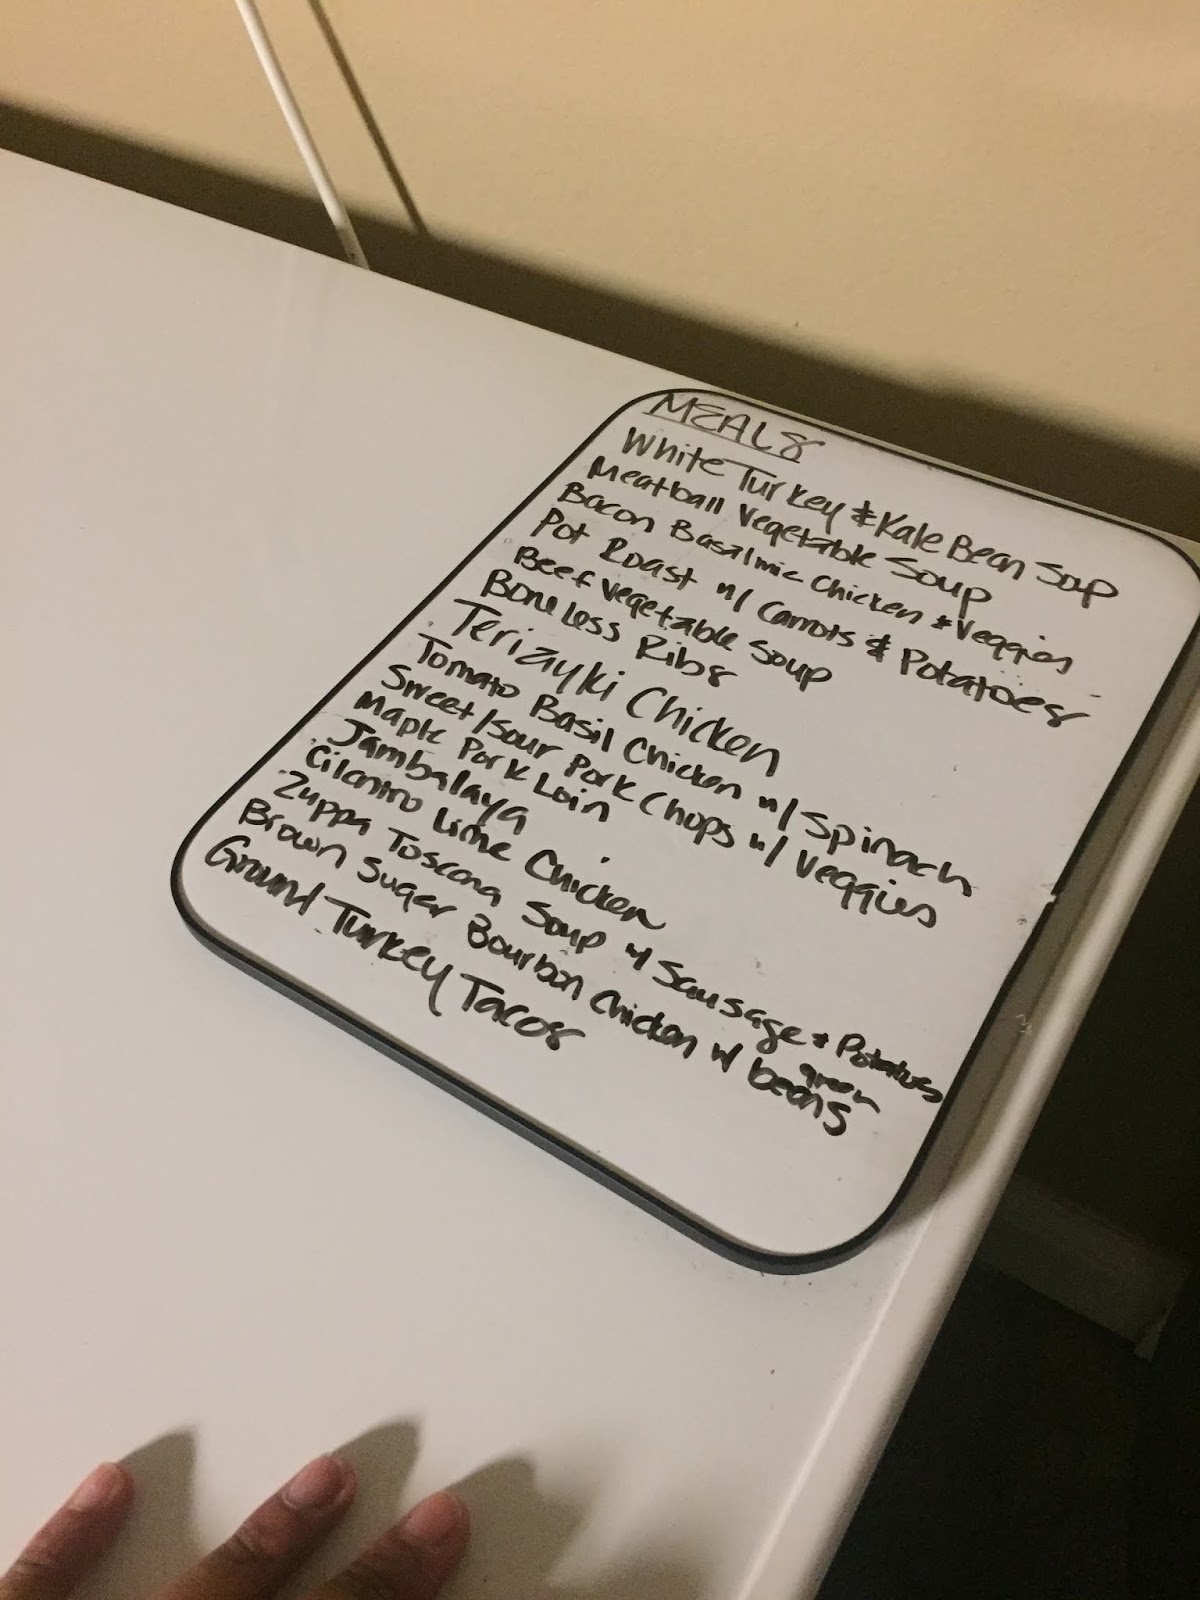 MEALS
White Turkey & Kale Bean Soup
Meatball Vegetable Soup
Bacon Basalmic Chicken & Veggies
Pot Roast w/ Carrots & Potatoes
Beef Vegetable Soup
Boneless Ribs
Terizayki Chicken
Tomato Basil Chicken w/ Spinach
Sweet/Sour Pork Chops w/ Veggies
Maple Pork Loin
Jambalaya
Cilantro Lime Chicken
Zuppa Toscana Soup w/ Sausage & Potatoes
Brown Sugar Bourbon Chicken w/ green beans
Ground Turkey Tacos